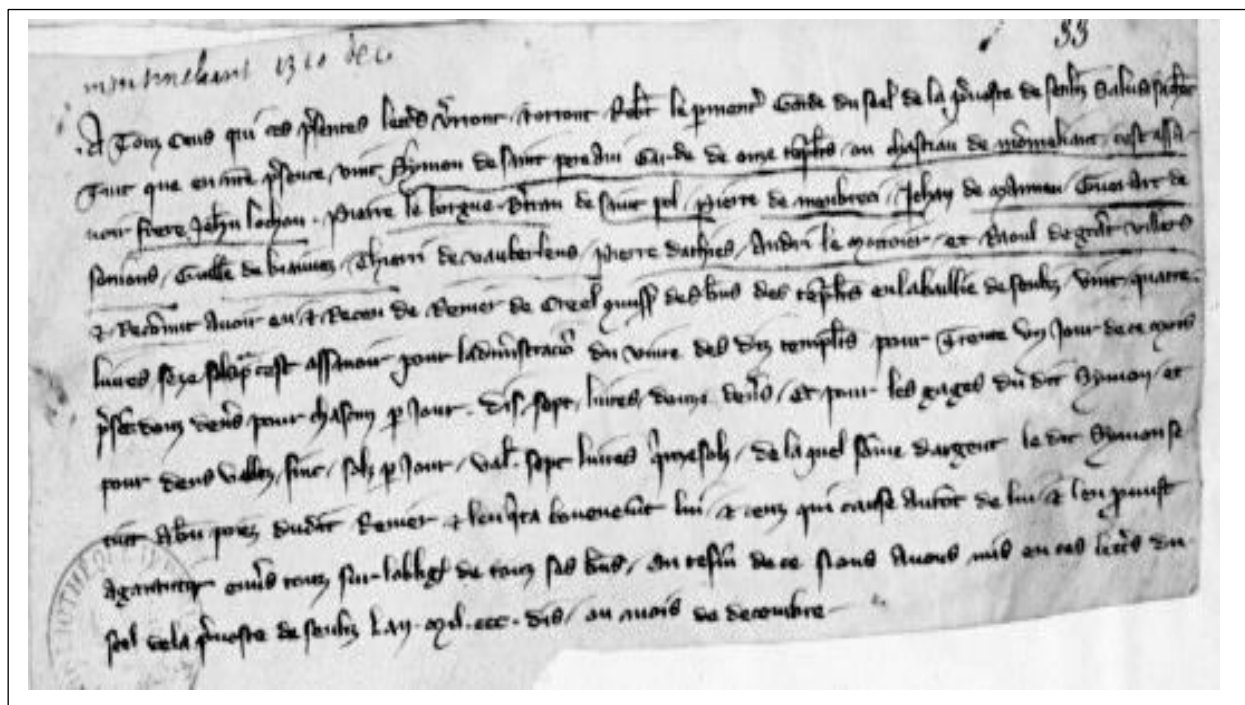 montmeliant 1310 dec.
33
A Touz ceus qui ces p̃sentes lett̃s v̾ront & orront Rob̃t le p̃ment̾ Garde du seel de la p̃uoste de senliz Salus sachent
Tuit que en nr̃e p̃sence vint Symon de saint pere Garde de onze templ̃s ou chastiau de montmeliant cest assa-
uoir frere Jeh̃n lochan. Pierre le borgne B̾tran de saint pol, pierre de monbreci, Jehan de Guerart de
Guill̃e de Thierri de vaubellens, pierre dathies, Andri le mortoier, et Raoul de gr̃nt villers
& Recõnut Auoir eu & Receu de Renier de Creel des b̃ns des templ̃s en la baillie de senliz vint quatre
liures seze sol̃ p̃ cest assauoir pour ladmĩstraciõ du viure des diz templ̃s pour Trente vn Jour de ce mois
p̃sẽt douz den̾s pour chascun p̱ Jour. dis sept liures douze den̾s, et pour les gages du dit Symon et
pour deus vallez, sinc solz p̱ Jour, val̃. sept liures q̃nze solz, de laquel sõme dargent le dit Symon se
tint A b̃n poiez dudit Renier & len q̃ta bonement lui, & ceuz qui cause Aurõt de lui & len p̃mist
A garantir enu̾s touz sus lobligãt de touz ses b̃ns, en tesm̃ de ce Nous Auons mis en ces lett̃s du
seel de la p̃uoste de senliz Lan. mil. ccc. dis, ou mois de decembre